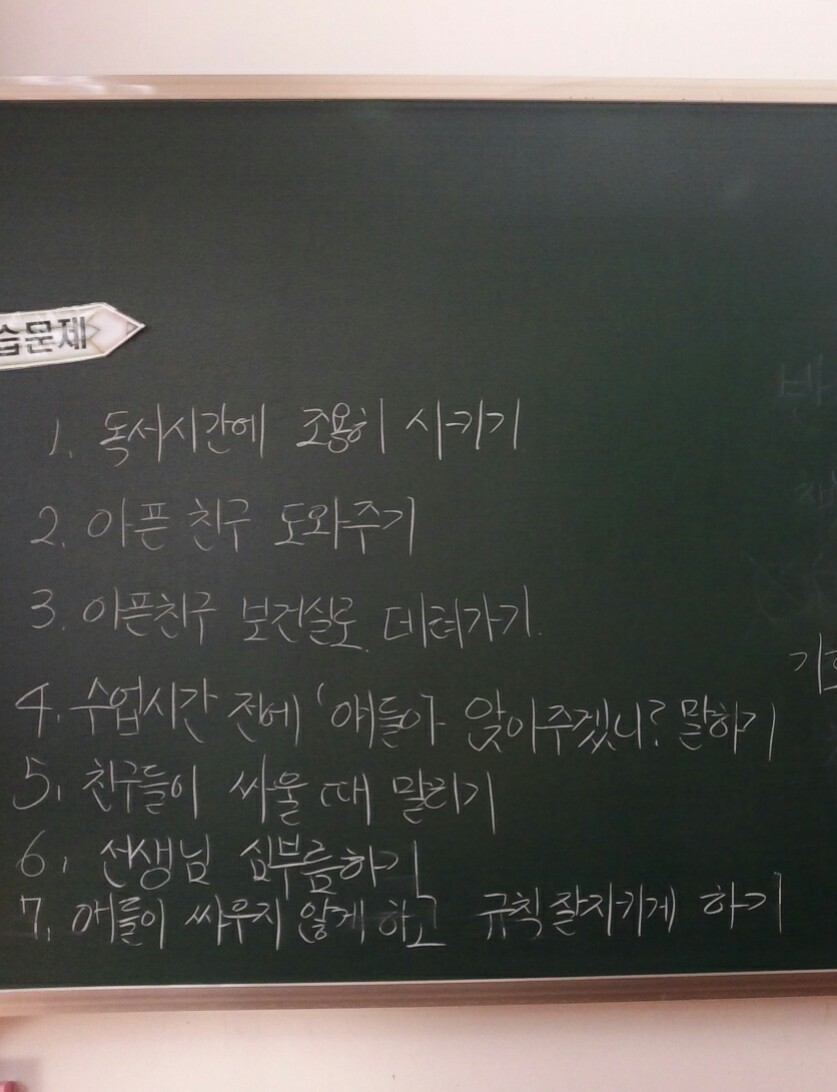 습문제
1. 독서시간에 조용히 시키기
2. 아픈 친구 도와주기
3. 아픈친구 보건실로 데려가기.
4. 수업시간 전에 '애들아 앉아주겠니? 말하기
5. 친구들이 싸울 때 말리기
6. 선생님 심부름하기
7. 애들이 싸우지 않게 하고 규칙잘지키게 하기